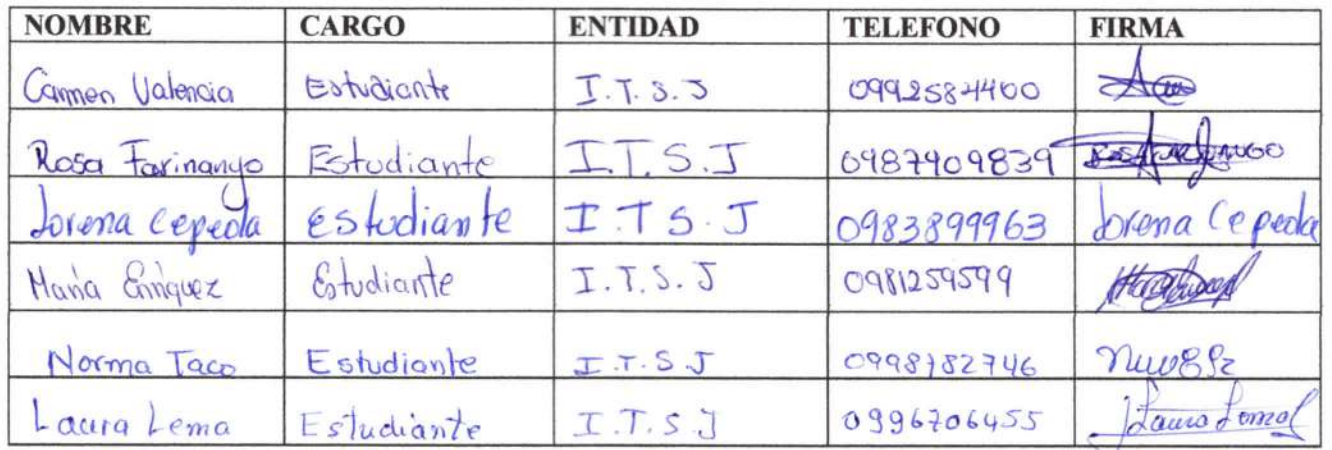 NOMBRE CARGO ENTIDAD TELEFONO FIRMA
Carmen Valencia Estudiante I.T.S.J 0992584400
Rosa Farinango Estudiante I.T.S.J 0987909839
Lorena Cepeda Estudiante I.T.S.J 0983899963 Lorena Cepeda
Maria Enriquez Estudiante I.T.S.J 0981259599
Norma Taco Estudiante I.T.S.J 0998782746
Laura Lema Estudiante I.T.S.J 0996706455